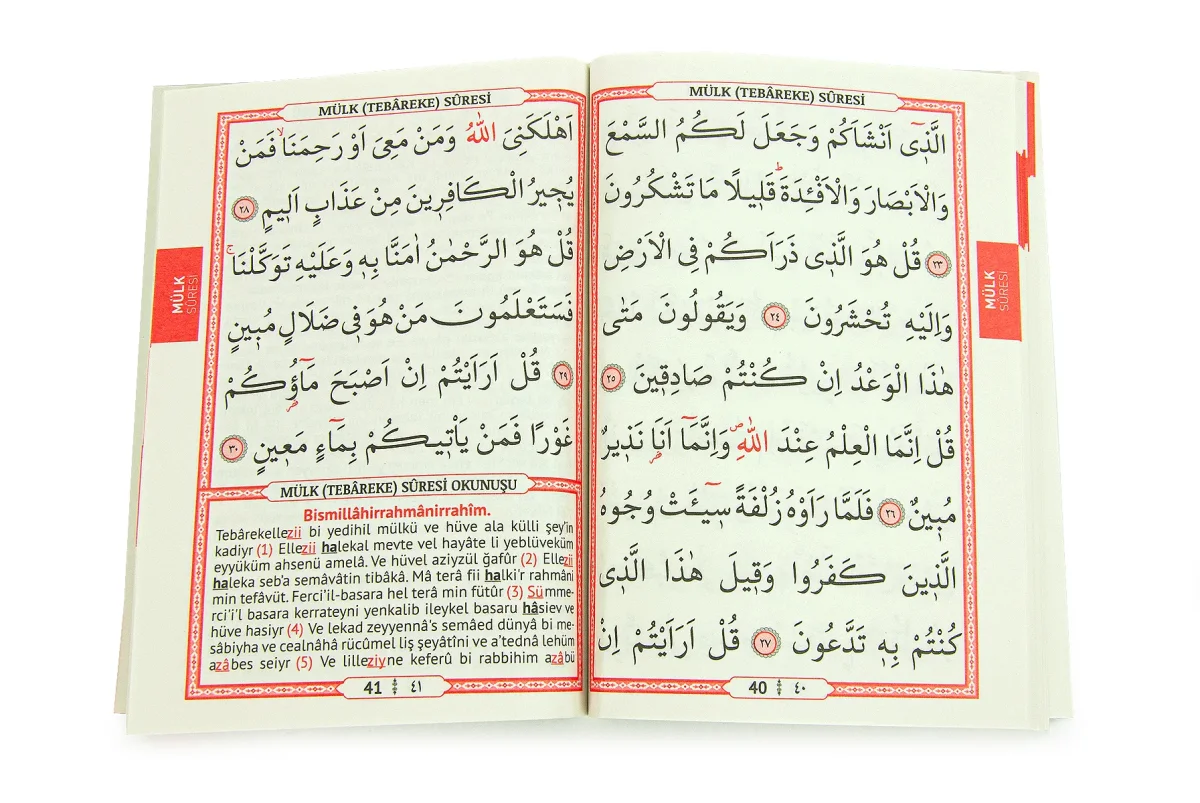 MÜLK (TEBÂREKE) SÛRESİ
الَّذ۪ٓي اَنْشَاَكُمْ وَجَعَلَ لَكُمُ السَّمْعَ
وَالْاَبْصَارَ وَالْاَفْـِٔدَةَۜ قَل۪يلًا مَا تَشْكُرُونَ
﴿٢٣﴾ قُلْ هُوَ الَّذ۪ي ذَرَاَكُمْ فِي الْاَرْضِ
وَاِلَيْهِ تُحْشَرُونَ ﴿٢٤﴾ وَيَقُولُونَ مَتٰى
هٰذَا الْوَعْدُ اِنْ كُنْتُمْ صَادِق۪ينَ ﴿٢٥﴾
قُلْ اِنَّمَا الْعِلْمُ عِنْدَ اللّٰهِۖ وَاِنَّمَٓا اَنَا۬ نَذ۪يرٌ
مُب۪ينٌ ﴿٢٦﴾ فَلَمَّا رَاَوْهُ زُلْفَةً س۪ٓيـَٔتْ وُجُوهُ
الَّذ۪ينَ كَفَرُوا وَق۪يلَ هٰذَا الَّذ۪ي
كُنْتُمْ بِه۪ تَدَّعُونَ ﴿٢٧﴾ قُلْ اَرَاَيْتُمْ اِنْ
40 ٤٠
MÜLK
SÛRESİ
MÜLK (TEBÂREKE) SÛRESİ
اَهْلَكَنِيَ اللّٰهُ وَمَنْ مَعِيَ اَوْ رَحِمَنَاۙ فَمَنْ
يُج۪يرُ الْكَافِر۪ينَ مِنْ عَذَابٍ اَل۪يمٍ ﴿٢٨﴾
قُلْ هُوَ الرَّحْمٰنُ اٰمَنَّا بِه۪ وَعَلَيْهِ تَوَكَّلْنَاۚ
فَسَتَعْلَمُونَ مَنْ هُوَ ف۪ي ضَلَالٍ مُب۪ينٍ
﴿٢٩﴾ قُلْ اَرَاَيْتُمْ اِنْ اَصْبَحَ مَٓاؤُ۬كُمْ
غَوْرًا فَمَنْ يَأْت۪يكُمْ بِمَٓاءٍ مَع۪ينٍ ﴿٣٠﴾
MÜLK (TEBÂREKE) SÛRESİ OKUNUŞU
Bismillâhirrahmânirrahîm.
Tebârekellezii bi yedihil mülkü ve hüve ala külli şey'in
kadiyr (1) Ellezii halekal mevte vel hayâte li yeblüveküm
eyyüküm ahsenü amelâ. Ve hüvel aziyzül ğafûr (2) Ellezii
haleka seb'a semâvâtin tibâkâ. Mâ terâ fii halki'r rahmâni
min tefâvüt. Ferci'il-basara hel terâ min fütûr (3) Sümme-
rci'i'l basara kerrateyni yenkalib ileykel basaru hâsiev ve
hüve hasiyr (4) Ve lekad zeyyennâ's semâed dünyâ bi me-
sâbiyha ve cealnâhâ rücûmel liş şeyâtîni ve a'tednâ lehüm
azâbes seiyr (5) Ve lilleziyne keferû bi rabbihim azâbü
41 ٤١
MÜLK
SÛRESİ